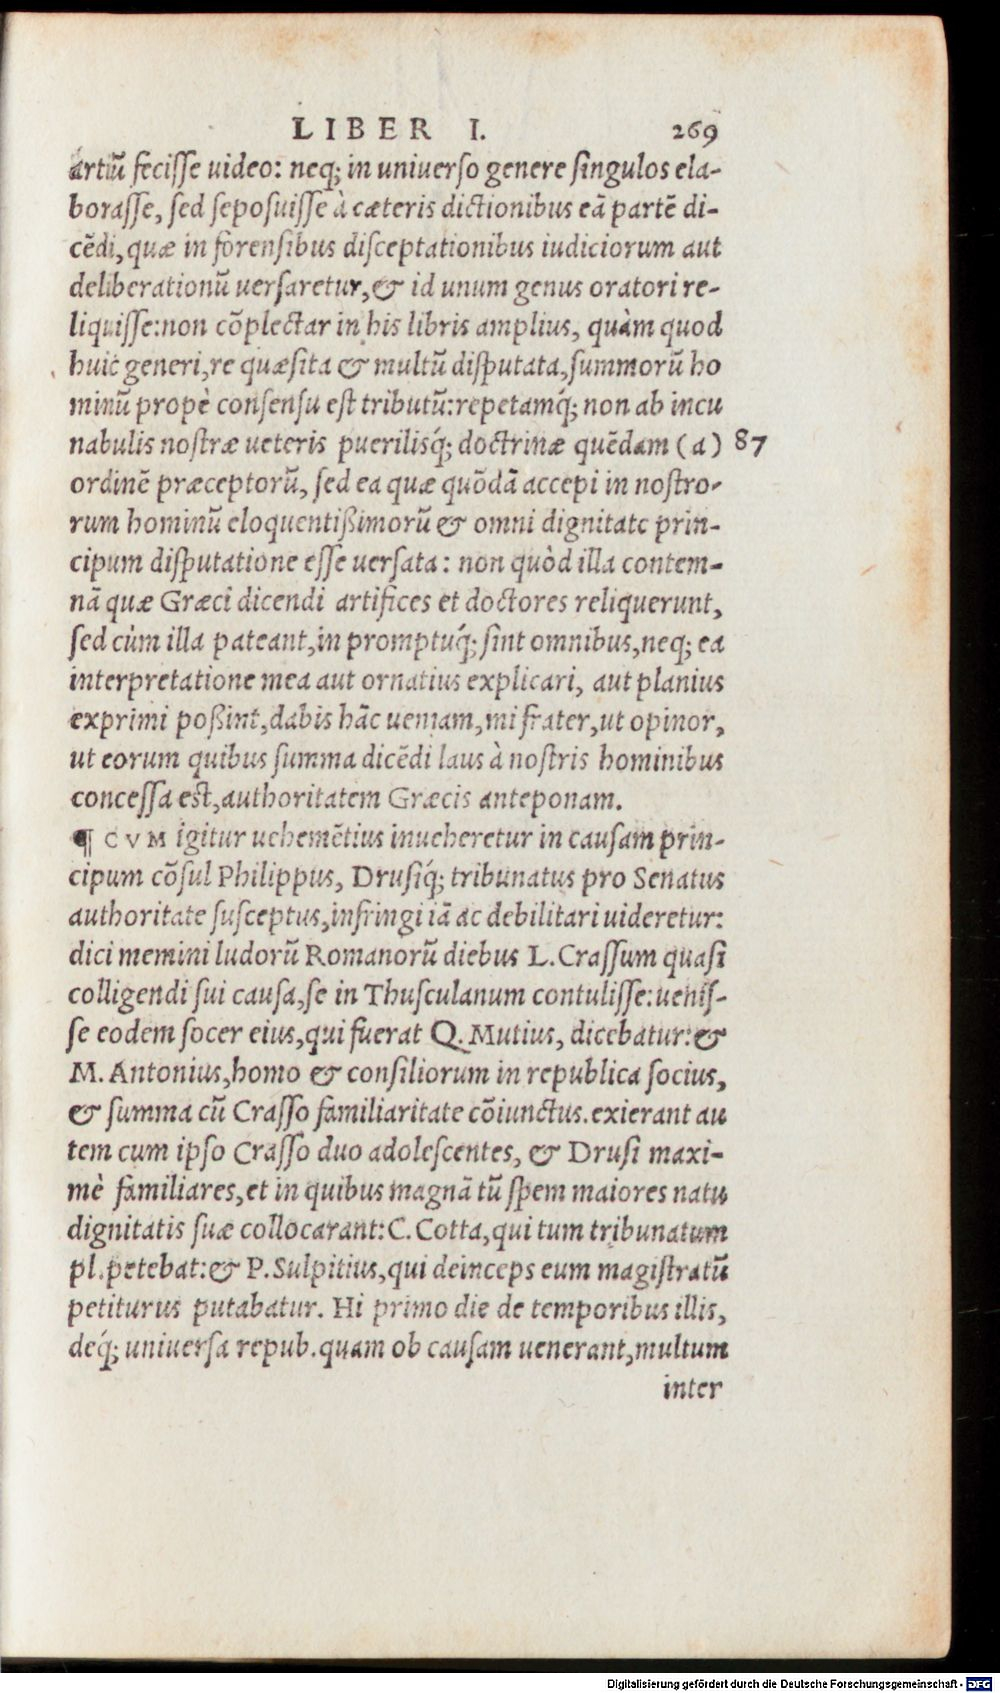 LIBER I. 269
artiū fecisse uideo: neq; in uniuerso genere singulos ela-
borasse, sed seposuisse à cæteris dictionibus eā partē di-
cēdi, quæ in forensibus disceptationibus iudiciorum aut
deliberationū uersaretur, & id unum genus oratori re-
liquisse: non cōplectar in his libris amplius, quàm quod
huic generi, re quæsita & multū disputata, summorū ho
minū propè consensu est tributū: repetamq́; non ab incu
nabulis nostræ ueteris puerilisq́; doctrinæ quēdam (a) 87
ordinē præceptorū, sed ea quæ quōdā accepi in nostro-
rum hominū eloquentißimorū & omni dignitate prin-
cipum disputatione esse uersata: non quòd illa contem-
nā quæ Græci dicendi artifices et doctores reliquerunt,
sed cùm illa pateant, in promptuq́; sint omnibus, neq; ea
interpretatione mea aut ornatius explicari, aut planius
exprimi poßint, dabis hāc ueniam, mi frater, ut opinor,
ut eorum quibus summa dicēdi laus à nostris hominibus
concessa est, authoritatem Græcis anteponam.
¶ CVM igitur uehemētius inueheretur in causam prin-
cipum cōsul Philippus, Drusiq́; tribunatus pro Senatus
authoritate susceptus, infringi iā ac debilitari uideretur:
dici memini ludorū Romanorū diebus L. Crassum quasi
colligendi sui causa, se in Thusculanum contulisse: uenis-
se eodem socer eius, qui fuerat Q. Mutius, dicebatur: &
M. Antonius, homo & consiliorum in republica socius,
& summa cū Crasso familiaritate cōiunctus. exierant au
tem cum ipso Crasso duo adolescentes, & Drusi maxi-
mè familiares, et in quibus magnā tū spem maiores natu
dignitatis suæ collocarant: C. Cotta, qui tum tribunatum
pl. petebat: & P. Sulpitius, qui deinceps eum magistratū
petiturus putabatur. Hi primo die de temporibus illis,
deq́; uniuersa repub. quam ob causam uenerant, multum
inter
Digitalisierung gefördert durch die Deutsche Forschungsgemeinschaft - DFG